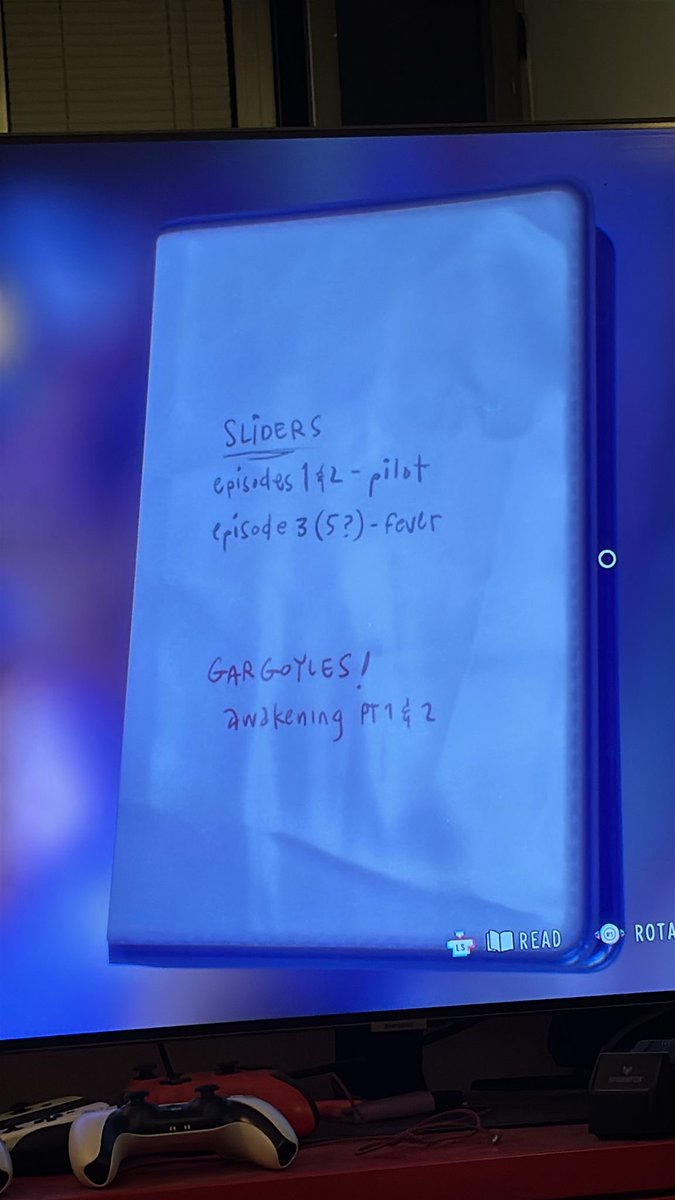 SLiDERS
episodes 1 & 2 - pilot
episode 3 (5?) - fever
GARGOYLES!
awakening PT 1 & 2
LS READ RS ROTA